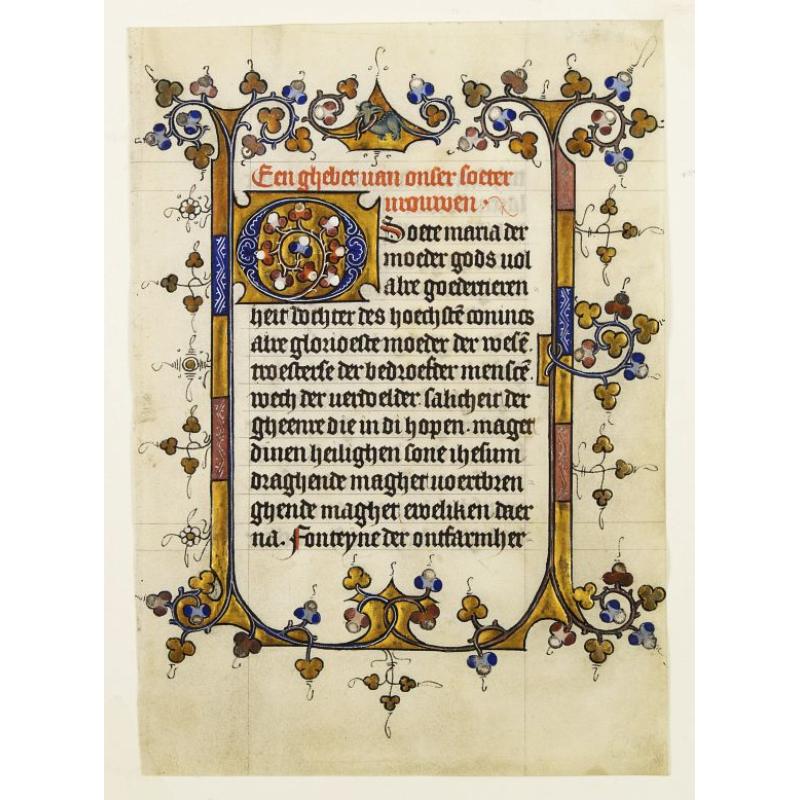 Een ghebet uan onser soeter
urouwen.
O Soete maria der
moeder gods uol
alre goedertieren
heit dochter des hoechstē conincs
alre glorioeste moeder der wesē.
troesterse der bedroefder menscē.
wech der uerdoelder. salicheit der
gheenre die in di hopen. maget
dinen heilighen sone ihesum
draghende maghet uoertbren
ghende maghet eweliken daer
na. Fonteyne der ontfarmher